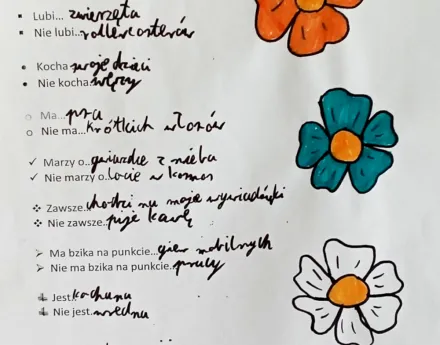 Lubi... zwierzęta
Nie lubi..rollercosterów
Kocha swoje dzieci
Nie kocha węży
Ma...psa
Nie ma...krótkich włosów
Marzy o..gwiazdce z nieba
Nie marzy o..locie w kosmos
Zawsze..chodzi na moje wywiadówki
Nie zawsze..pije kawę
Ma bzika na punkcie...gier mobilnych
Nie ma bzika na punkcie..pracy
Jest kochana
Nie jest..wredna